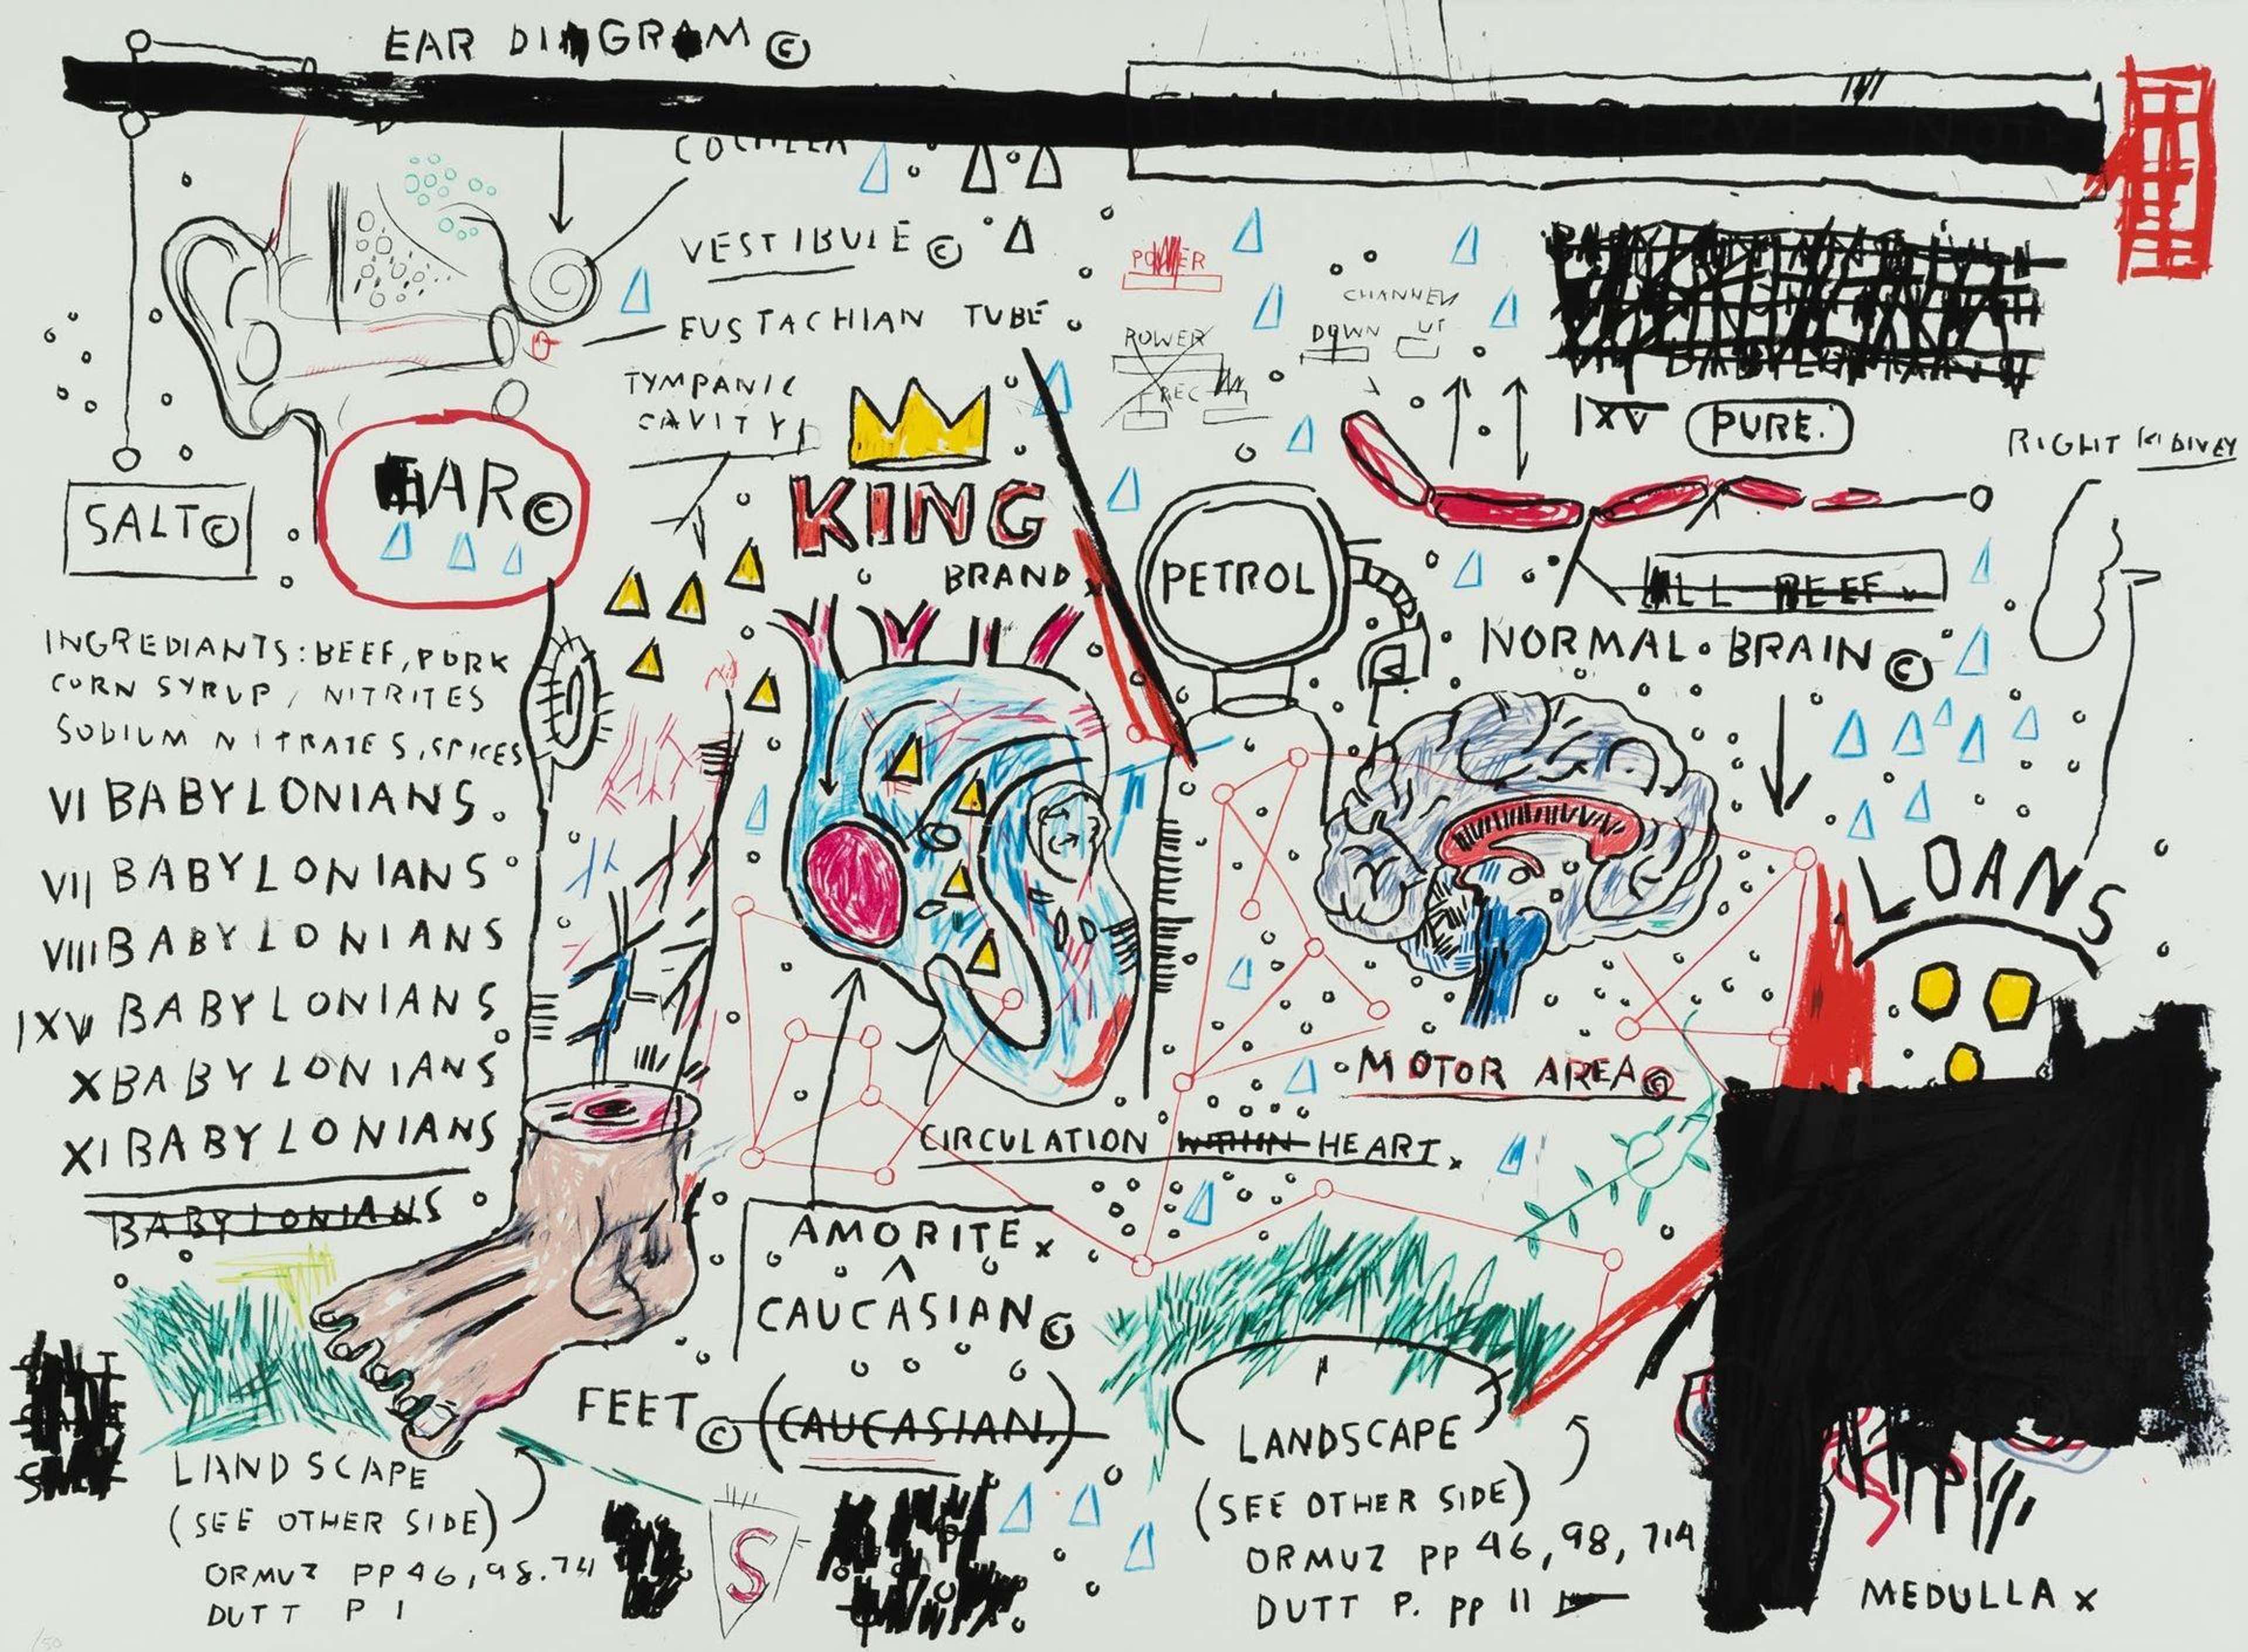 EAR DIAGRAM ©
COCHLEA
VESTIBULE ©
EUSTACHIAN TUBE
TYMPANIC
CAVITY
EAR ©
SALT ©
KING
BRAND x
POWER
POWER
REC
CHANNEL
DOWN UP
PETROL
IXV PURE.
RIGHT KIDNEY
ALL BEEF
NORMAL BRAIN ©
INGREDIANTS: BEEF, PORK
CORN SYRUP, NITRITES
SODIUM NITRATES, SPICES
VI BABYLONIANS
VII BABYLONIANS
VIII BABYLONIANS
IXV BABYLONIANS
X BABYLONIANS
XI BABYLONIANS
BABYLONIANS
LOANS
MOTOR AREA ©
CIRCULATION WITHIN HEART x
AMORITE x
CAUCASIAN ©
FEET © (CAUCASIAN.)
LANDSCAPE
(SEE OTHER SIDE)
ORMUZ PP 46, 98. 714
DUTT P 1
S
LANDSCAPE
(SEE OTHER SIDE)
ORMUZ PP 46, 98, 714
DUTT P. PP 11
MEDULLA x
/50